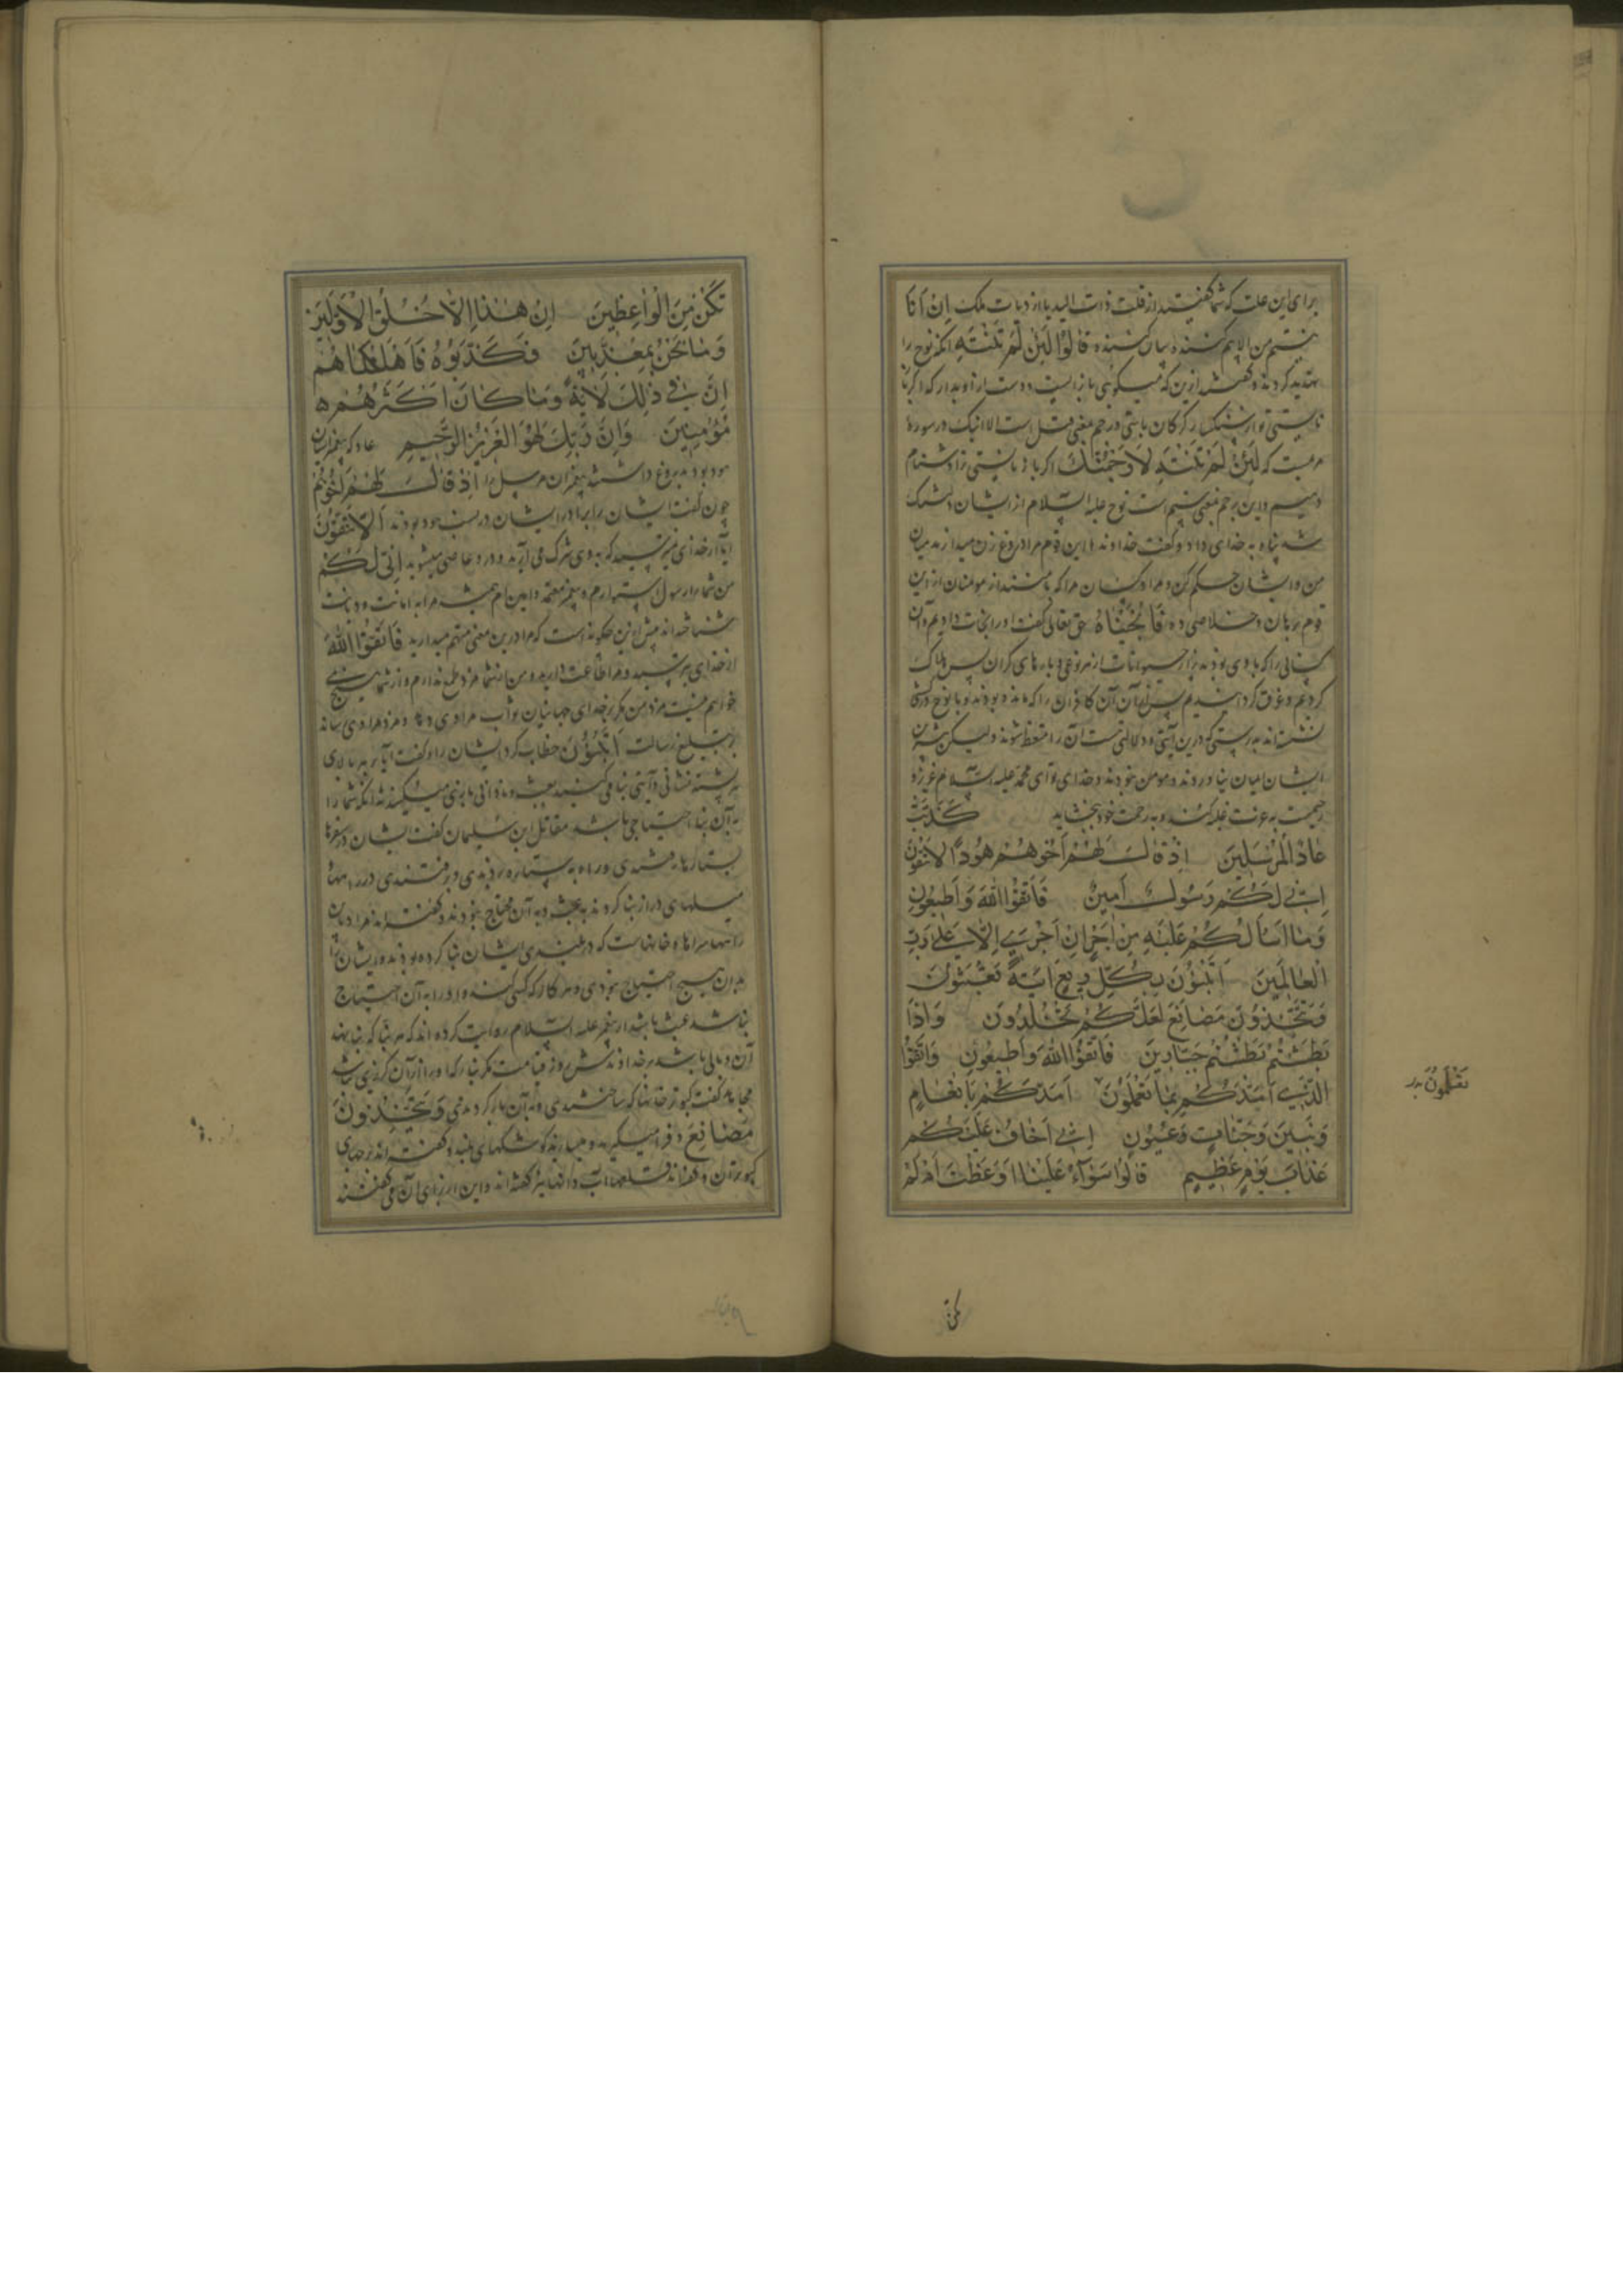 برای این علت که شما گفتید از قلت ذات الید یا از دیات ملک اِنْ اَنَا
نیستم من الا بیم کننده بیان کننده قَالُوْا لَئِنْ لَمْ تَنْتَهِ آنگه نوح را
تهدید کردند و گفتند ازین که میگوئی باز ایست و دست ازاو بدار که اگر باز
نایستی تو از سنگسار کردگان باشی و رجم بمعنی قتل است الا اینک در سورۀ
مریمست که لَئِنْ لَمْ تَنْتَهِ لَاَرْجُمَنَّكَ اگر باز نایستی ترا دشنام
دهیم و این رجم بمعنی شتم است نوح علیه السلام از ایشان
شد پناه به خدای داد و گفت خداوندا این قوم مرا دروغ زن میدارند میان
من و ایشان حکم کن و مرا و کسان مرا که با منند از مومنان از این
قوم برهان و خلاصی ده فَاَنْجَيْنَاهُ حق تعالی گفت او را نجات دادیم و آن
کسانی را که با وی بودند از حیوانات از هر نوعی و بارهای گران پس هلاک
کردیم و غرق گردانیدیم پس از آن آن کافران را که مانده بودند و با نوح در کشتی
ننشسته اند بدرستی که درین آیتی و دلالتی هست آن را متعظ شوند ولیکن بیشترین
ایشان ایمان نیاوردند و مومن نبودند و خدای تو ای محمد علیه السلام عزیز و
رحیمست به عزت غلبه کند و به رحمت خود ببخشاید كَذَّبَتْ
عَادٌ الْمُرْسَلِينَ اِذْ قَالَ لَهُمْ اَخُوهُمْ هُودٌ اَلَا تَتَّقُونَ
اِنِّي لَكُمْ رَسُولٌ اَمِينٌ فَاتَّقُوا اللّٰهَ وَاَطِيعُونِ
وَمَا اَسْاَلُكُمْ عَلَيْهِ مِنْ اَجْرٍ اِنْ اَجْرِيَ اِلَّا عَلٰى رَبِّ
الْعَالَمِينَ اَتَبْنُونَ بِكُلِّ رِيعٍ اٰيَةً تَعْبَثُونَ
وَتَتَّخِذُونَ مَصَانِعَ لَعَلَّكُمْ تَخْلُدُونَ وَاِذَا
بَطَشْتُمْ بَطَشْتُمْ جَبَّارِينَ فَاتَّقُوا اللّٰهَ وَاَطِيعُونِ وَاتَّقُوا
الَّذِي اَمَدَّكُمْ بِمَا تَعْلَمُونَ اَمَدَّكُمْ بِاَنْعَامٍ
وَبَنِينَ وَجَنَّاتٍ وَعُيُونٍ اِنِّي اَخَافُ عَلَيْكُمْ
عَذَابَ يَوْمٍ عَظِيمٍ قَالُوا سَوَآءٌ عَلَيْنَا اَوَعَظْتَ اَمْ لَمْ
تعلمون
تکن
تَكُنْ مِنَ الْوَاعِظِينَ اِنْ هٰذَا اِلَّا خُلُقُ الْاَوَّلِينَ
وَمَا نَحْنُ بِمُعَذَّبِينَ فَكَذَّبُوهُ فَاَهْلَكْنَاهُمْ
اِنَّ فِي ذٰلِكَ لَاٰيَةً وَمَا كَانَ اَكْثَرُهُمْ
مُؤْمِنِينَ وَاِنَّ رَبَّكَ لَهُوَ الْعَزِيزُ الرَّحِيمُ عاد که پیغمبرشان
هود بود به دروغ داشتند پیغمبران مرسل را اِذْ قَالَ لَهُمْ اَخُوهُمْ
چون گفت ایشان را برادر ایشان در نسب هود بود ند اَلَا تَتَّقُونَ
آیا از خدای نمیترسید که به وی شرک می آرید و در و عاصی میشوید اِنِّي لَكُمْ
من شما را رسول استوارم و پیغمبر معتمد و امین ام همیشه مرا به امانت و دیانت
شناخته اند پیش ازین چگونه است که مرا درین معنی متهم میدارید فَاتَّقُوا اللّٰهَ
از خدای بترسید و مرا طاعت دارید و من از شما مزد طمع ندارم و از شما هیچ نمی
خواهم نیست مزد من مگر بر خدای جهانیان ثواب مرا وی دهد و مزد مرا وی رساند
بر تبلیغ رسالت اَتَبْنُونَ خطاب کرد ایشان را و گفت آیا بر هر بالای
و پشته نشانی و آیتی بنا می کنید بعبث و نادانی بازی میکنید نه آنکه شما را
به آن بنا احتیاجی باشد مقاتل ابن سلیمان گفت ایشان در سفرها
بستارها رفتندی و راه به ستاره بردندی و برفتندی در راهها
میلهای دراز بنا کردند به عبث و به آن محتاج نبودند و گفته اند مراد بآن
راهها مراد خانهاست که در بلندی ایشان بنا کرده بودند و ایشان را
بدان هیچ احتیاج نبودی و هر کار که کسی کند و او را به آن احتیاج
نباشد عبث باشد از پیغمبر علیه السلام روایت کرده اند که هر بنا که بنا نهند
آن وبالی باشد بر خداوندش روز قیامت مگر بنا که او را از آن گزیری نباشد
مجاهد گفت کبوتر خانها که ساختندی و به آن بازی کردندی وَتَتَّخِذُونَ
مَصَانِعَ و فرا میگیرید و میسازید کوشکهای بلند و گفته اند برجهای
کبوتران و گفته اند قلعها آب دانها نیز گفته اند و این از برای آن می کنند